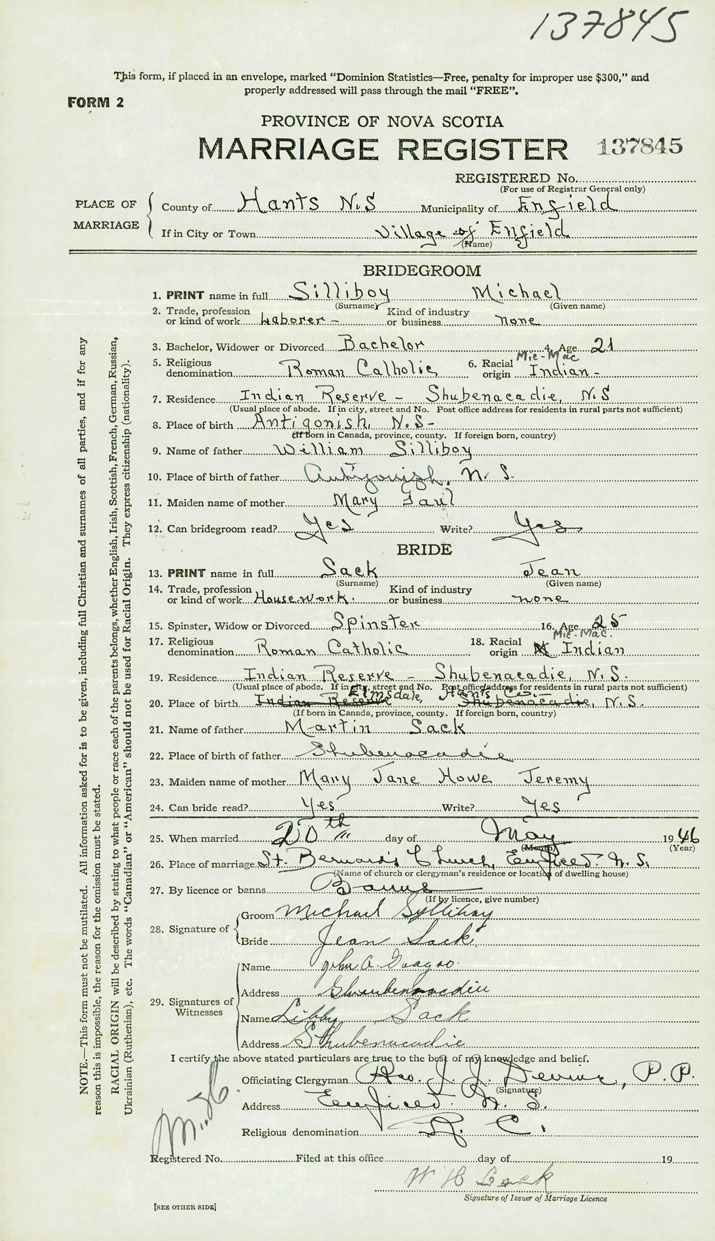 137845
This form, if placed in an envelope, marked "Dominion Statistics—Free, penalty for improper use $300," and
properly addressed will pass through the mail "FREE".
FORM 2
PROVINCE OF NOVA SCOTIA
MARRIAGE REGISTER 137845
REGISTERED No.
(For use of Registrar General only)
PLACE OF MARRIAGE
County of Hants N.S Municipality of Enfield
If in City or Town Village of Enfield
(Name)
BRIDEGROOM
1. PRINT name in full Silliboy Michael
(Surname) (Given name)
2. Trade, profession or kind of work Laborer - Kind of industry or business none
3. Bachelor, Widower or Divorced Bachelor 4. Age 21
5. Religious denomination Roman Catholic 6. Racial origin Mic-Mac Indian -
7. Residence Indian Reserve - Shubenacadie, N.S
(Usual place of abode. If in city, street and No. Post office address for residents in rural parts not sufficient)
8. Place of birth Antigonish, N.S-
(If Born in Canada, province, county. If foreign born, country)
9. Name of father William Silliboy
10. Place of birth of father Antigonish, N.S.
11. Maiden name of mother Mary Paul
12. Can bridegroom read? Yes Write? Yes
BRIDE
13. PRINT name in full Sack Jean
(Surname) (Given name)
14. Trade, profession or kind of work Housework. Kind of industry or business none
15. Spinster, Widow or Divorced Spinster 16. Age 25
17. Religious denomination Roman Catholic 18. Racial origin Mic-Mac. Indian
19. Residence Indian Reserve - Shubenacadie, N.S.
(Usual place of abode. If in city, street and No. Post office address for residents in rural parts not sufficient)
Elmsdale, Hants Co.
20. Place of birth Indian Reserve, Shubenacadie, N.S.
(If born in Canada, province, county. If foreign born, country)
21. Name of father Martin Sack
22. Place of birth of father Shubenacadie
23. Maiden name of mother Mary Jane Howe Jeremy
24. Can bride read? Yes Write? Yes
25. When married 20th day of May 1946
(Month) (Year)
26. Place of marriage St. Bernard's Church, Enfield N.S.
(Name of church or clergyman's residence or location of dwelling house)
27. By licence or banns Banns
(If by licence, give number)
28. Signature of
Groom Michael Sylliboy
Bride Jean Sack
29. Signatures of Witnesses
Name John A.
Address Shubenacadie
Name Libby Sack
Address Shubenacadie
I certify the above stated particulars are true to the best of my knowledge and belief.
Officiating Clergyman Rev. J. J. Devine, P.P.
(Signature)
Address Enfield N.S.
Religious denomination R.C.
Registered No. Filed at this office day of 19
W H
Signature of Issuer of Marriage Licence
[SEE OTHER SIDE]
NOTE.—This form must not be mutilated. All information asked for is to be given, including full Christian and surnames of all parties, and if for any
reason this is impossible, the reason for the omission must be stated.
RACIAL ORIGIN will be described by stating to what people or race each of the parents belongs, whether English, Irish, Scottish, French, German, Russian,
Ukrainian (Ruthenian), etc. The words "Canadian" or "American" should not be used for Racial Origin. They express citizenship (nationality).